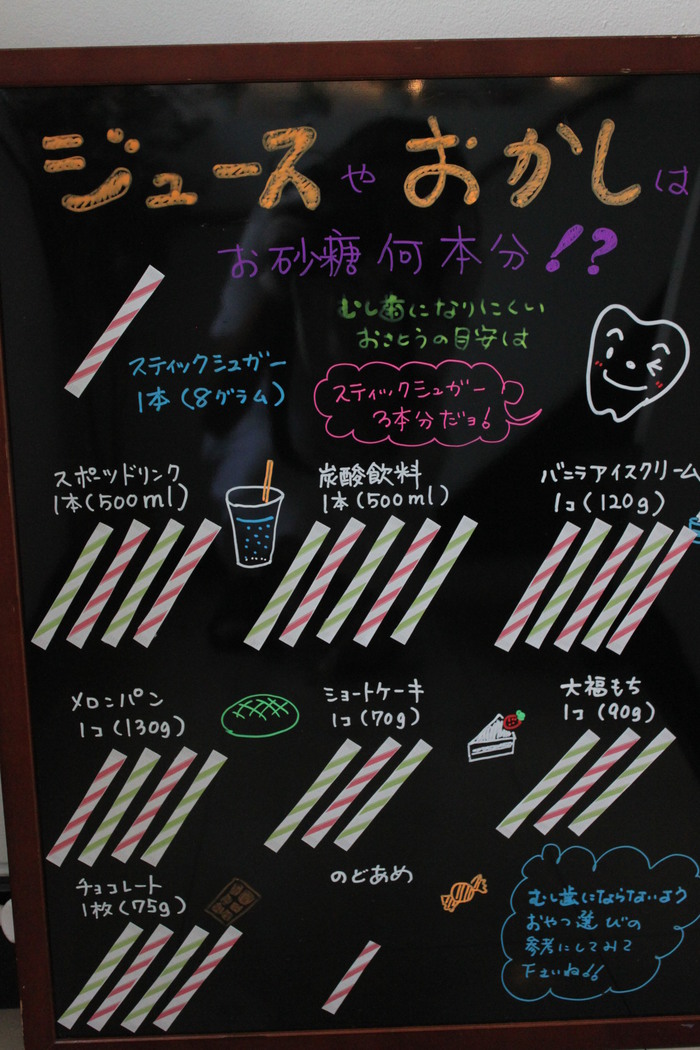 ジュースやおかしは
お砂糖何本分!?
むし歯になりにくい
おさとうの目安は
スティックシュガー
1本(8グラム)
スティックシュガー
3本分だョ!
スポーツドリンク
1本(500ml)
炭酸飲料
1本(500ml)
バニラアイスクリーム
1コ(120g)
メロンパン
1コ(130g)
ショートケーキ
1コ(70g)
大福もち
1コ(90g)
チョコレート
1枚(75g)
のどあめ
むし歯にならないよう
おやつ選びの
参考にしてみて
下さいね!!